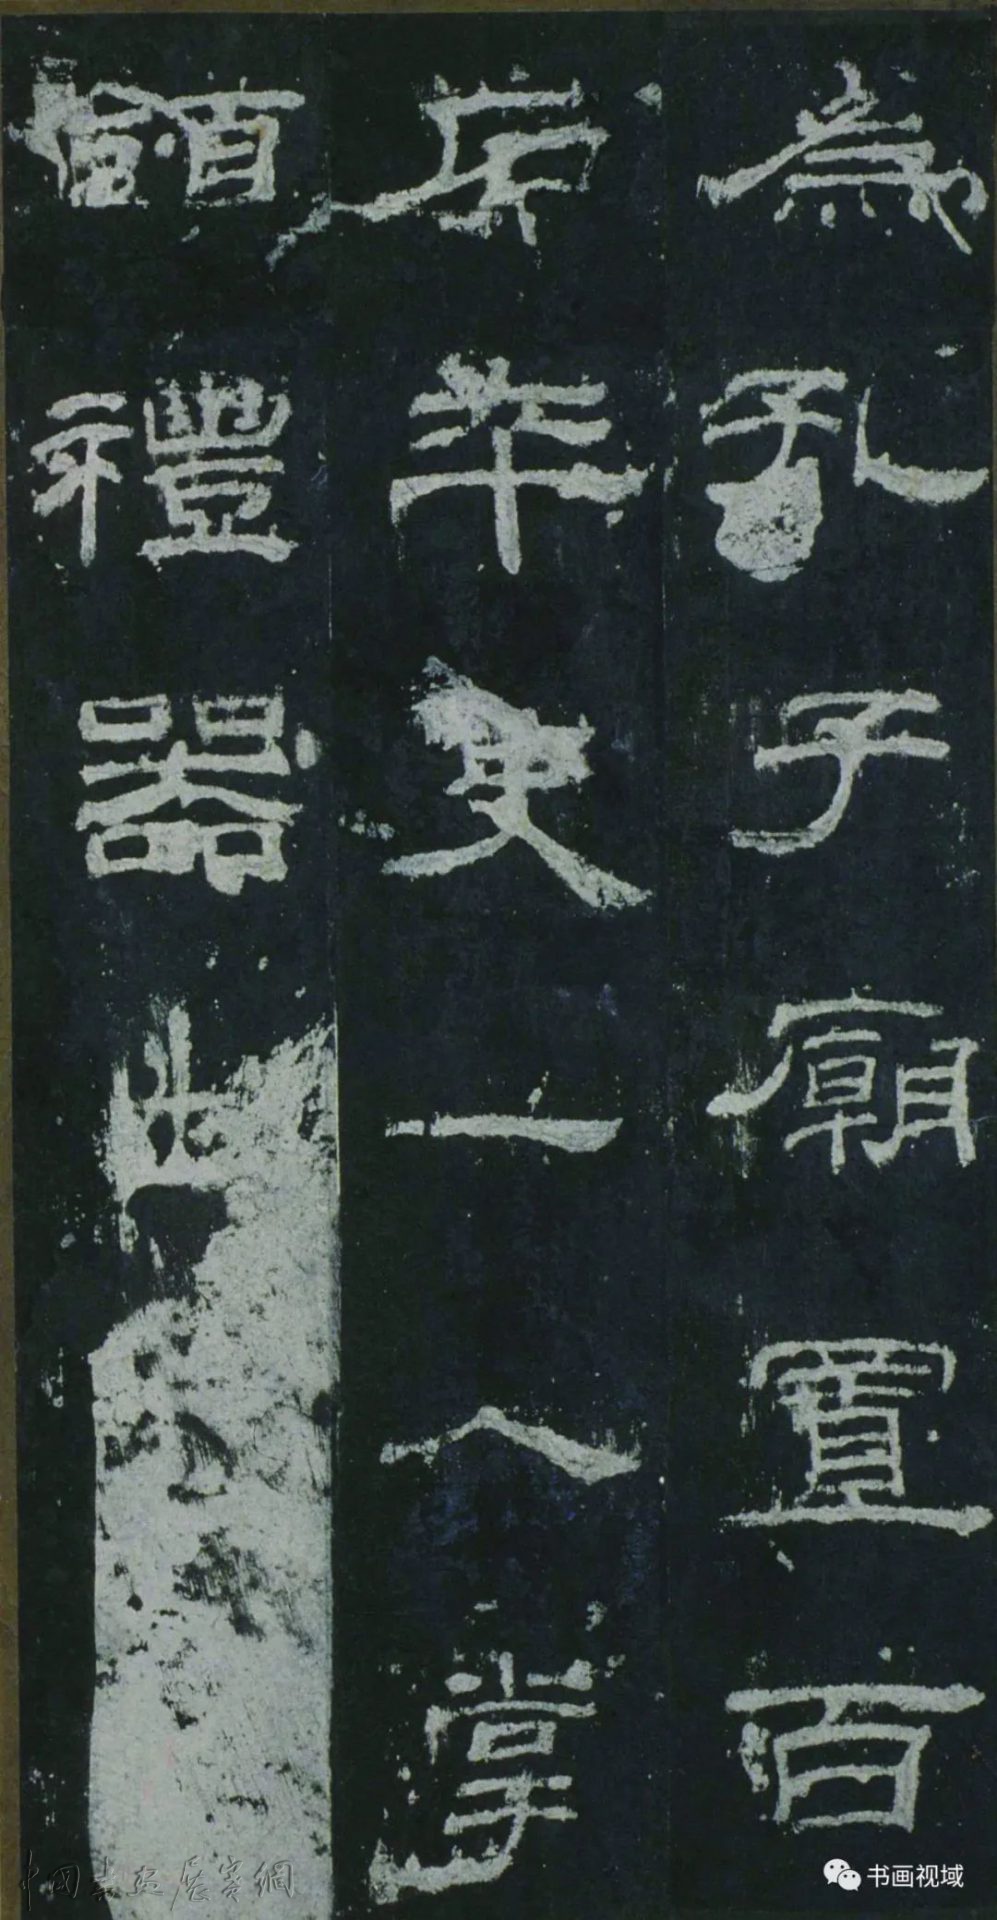 為孔子廟置百
石卒史一人掌
領禮器出
书画视域
中国書画展賽網